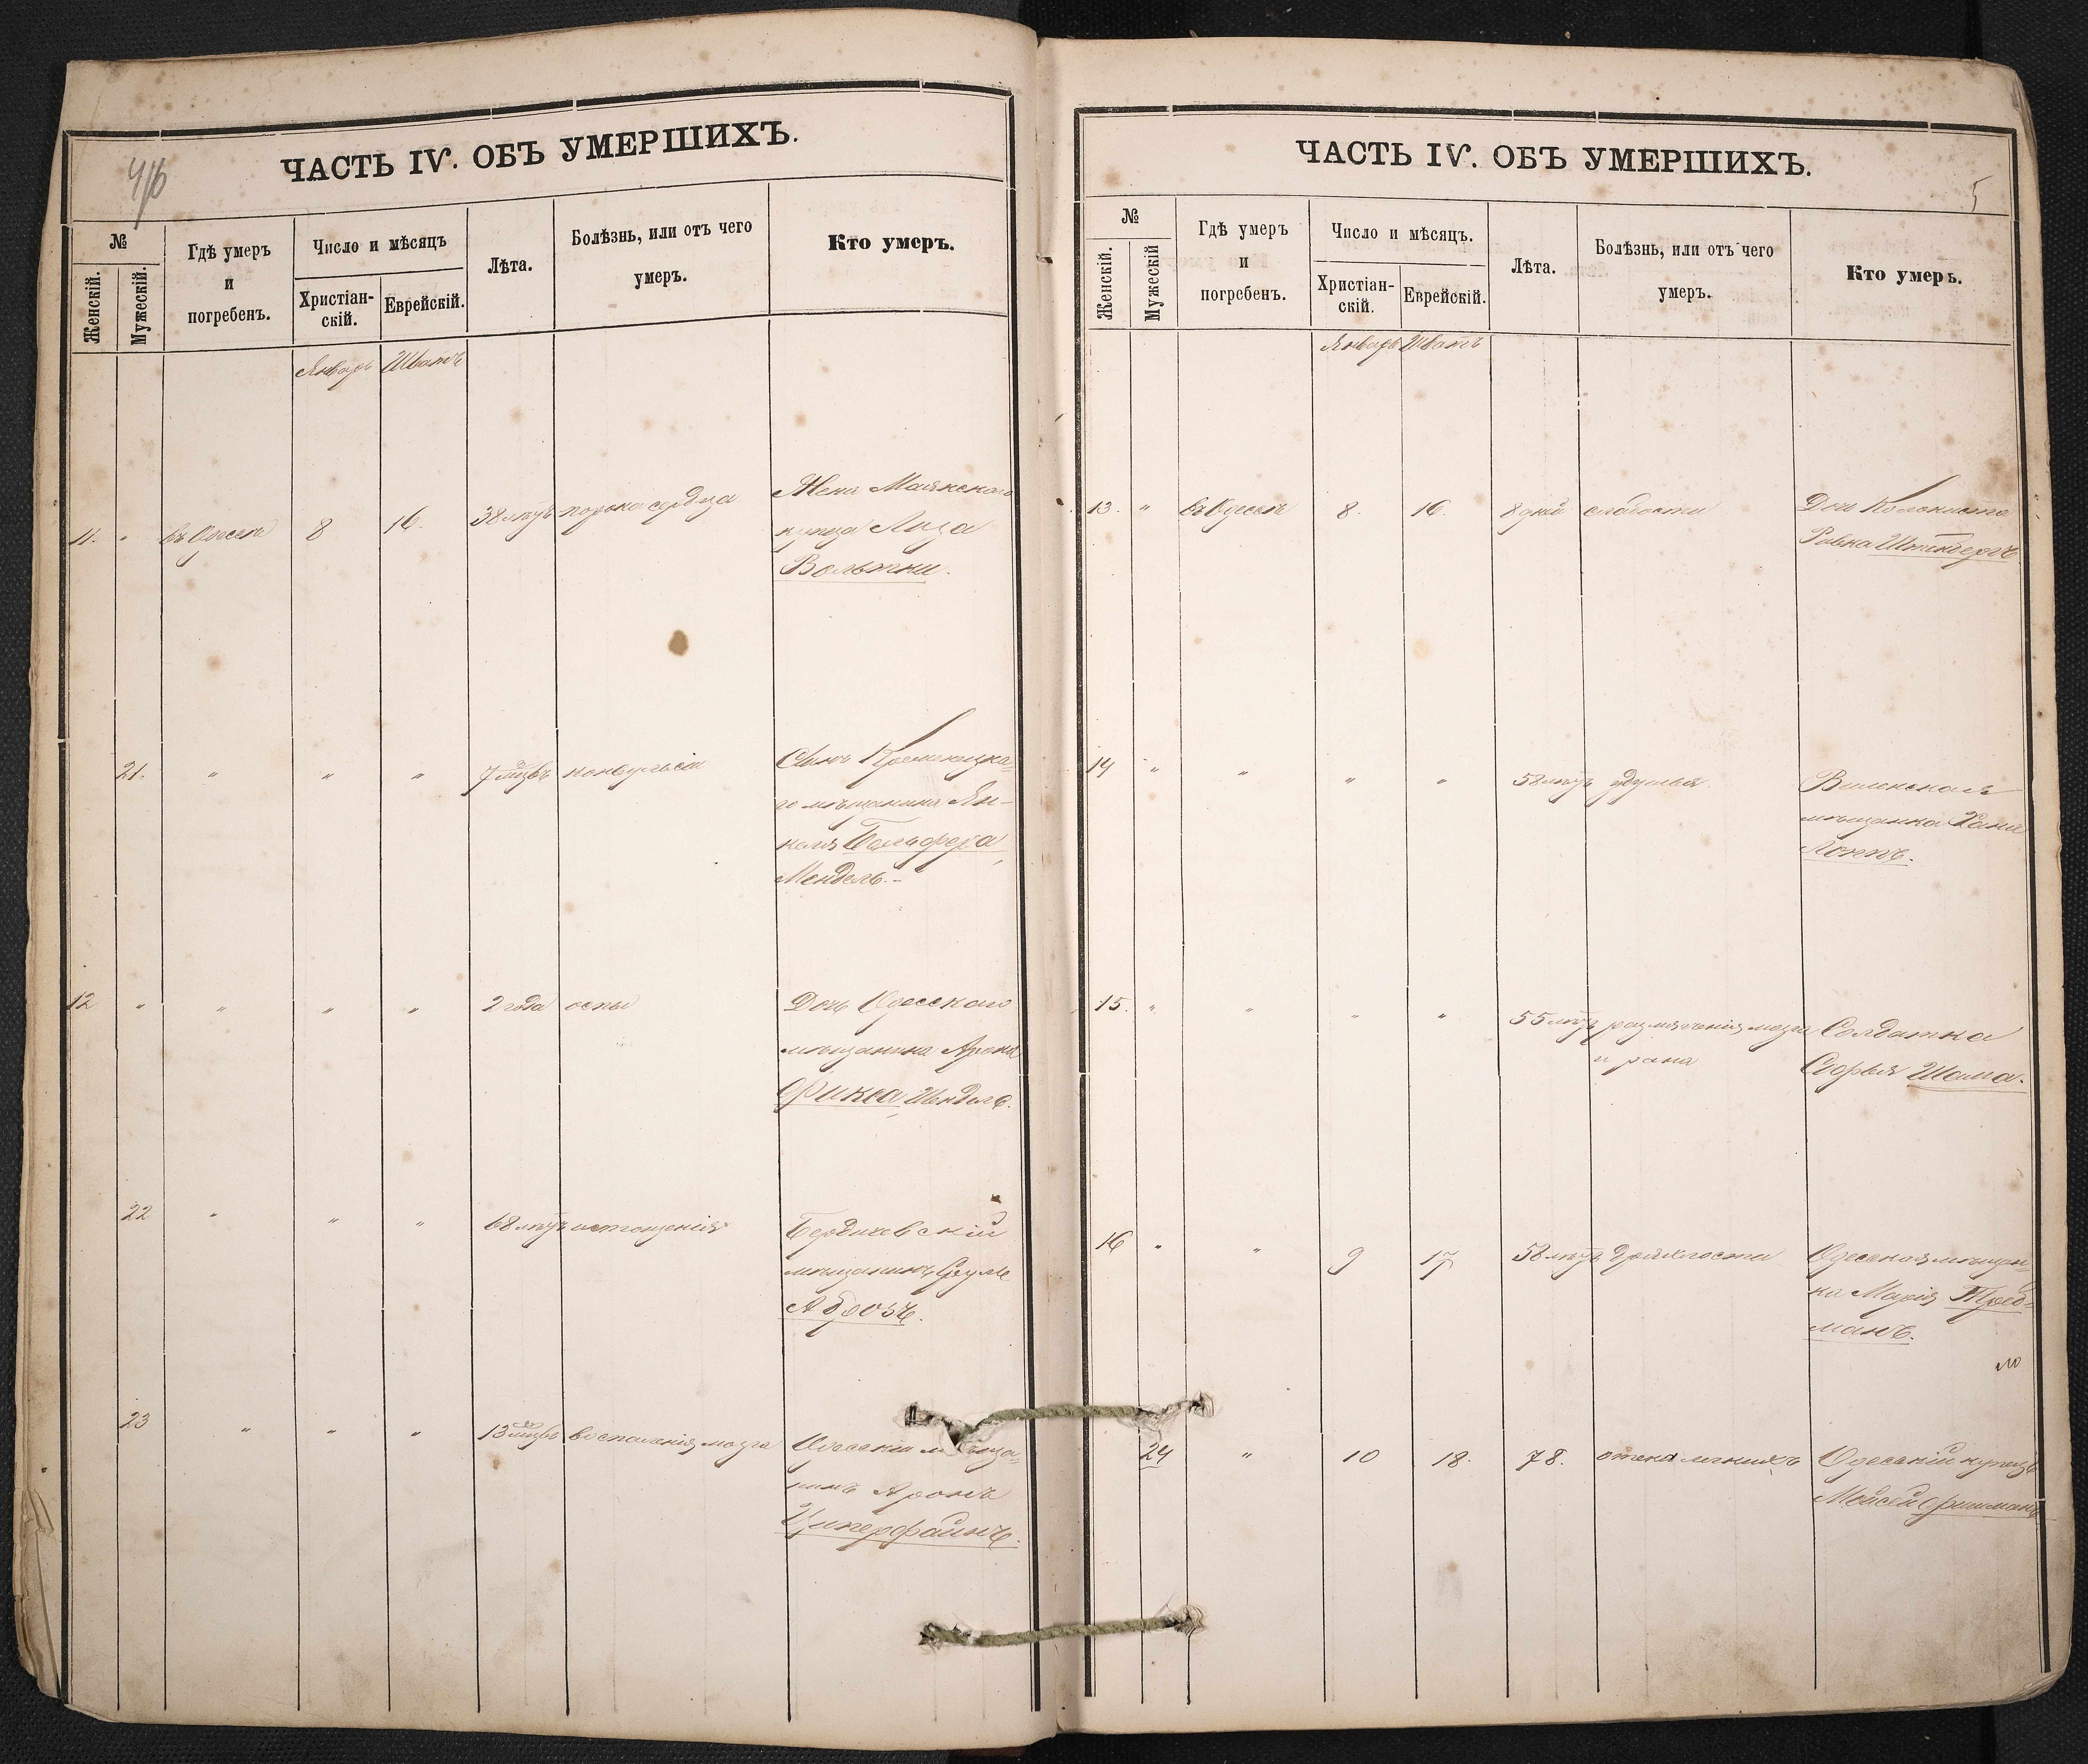 ЧАСТЬ IV. ОБЪ УМЕРШИХЪ.
№
Женскій.
Мужескій.
Гдѣ умеръ
и
погребенъ.
Число и мѣсяцъ
Христіан-
скій.
Еврейскій.
Лѣта.
Болѣзнь, или отъ чего
умеръ.
Кто умеръ.
Январь Шватъ
11. " въ Одессѣ 8 16. 38 лѣтъ порока сердца
Жена Маякскаго
купца Лиза
Вольтки.
21. " " " 7 мѣсъ конвульсіи
Сынъ Кременецка=
го мѣщанина Ян-
келя
Мендель.-
12 " " " " 2 года оспы
Дочь Одесскаго
мѣщанина Арона
Фикса, Шендель.
22 " " " 68 лѣтъ истощенія
Бердичевскій
мѣщанинъ Сруль
Аброзъ.
23 " " " 13 мѣсъ воспаленія мозга
Одесскій мѣща=
нинъ Аронъ
Циперфайнъ.
ЧАСТЬ IV. ОБЪ УМЕРШИХЪ.
5
№
Женскій.
Мужескій
Гдѣ умеръ
и
погребенъ.
Число и мѣсяцъ.
Христіан-
скій.
Еврейскій.
Лѣта.
Болѣзнь, или отъ чего
умеръ.
Кто умеръ.
Январь Шватъ
13. " въ Одессѣ 8. 16. 8 дней слабости
Дочь Колониста
Ривка Штейнбергъ
14 " " " " 58 лѣтъ удушья.
Виленская
мѣщанка Хана
15. " " " " 55 лѣтъ размягченія мозга
и рана
Солдатка
Софья Шама.
16 " " 9 17 58 лѣтъ дряхлости
Одесская мѣщан
ка Марія Трос=
манъ.
24 " 10 18. 78. отека легкихъ
Одесскій купецъ
Мойсей Фришманъ